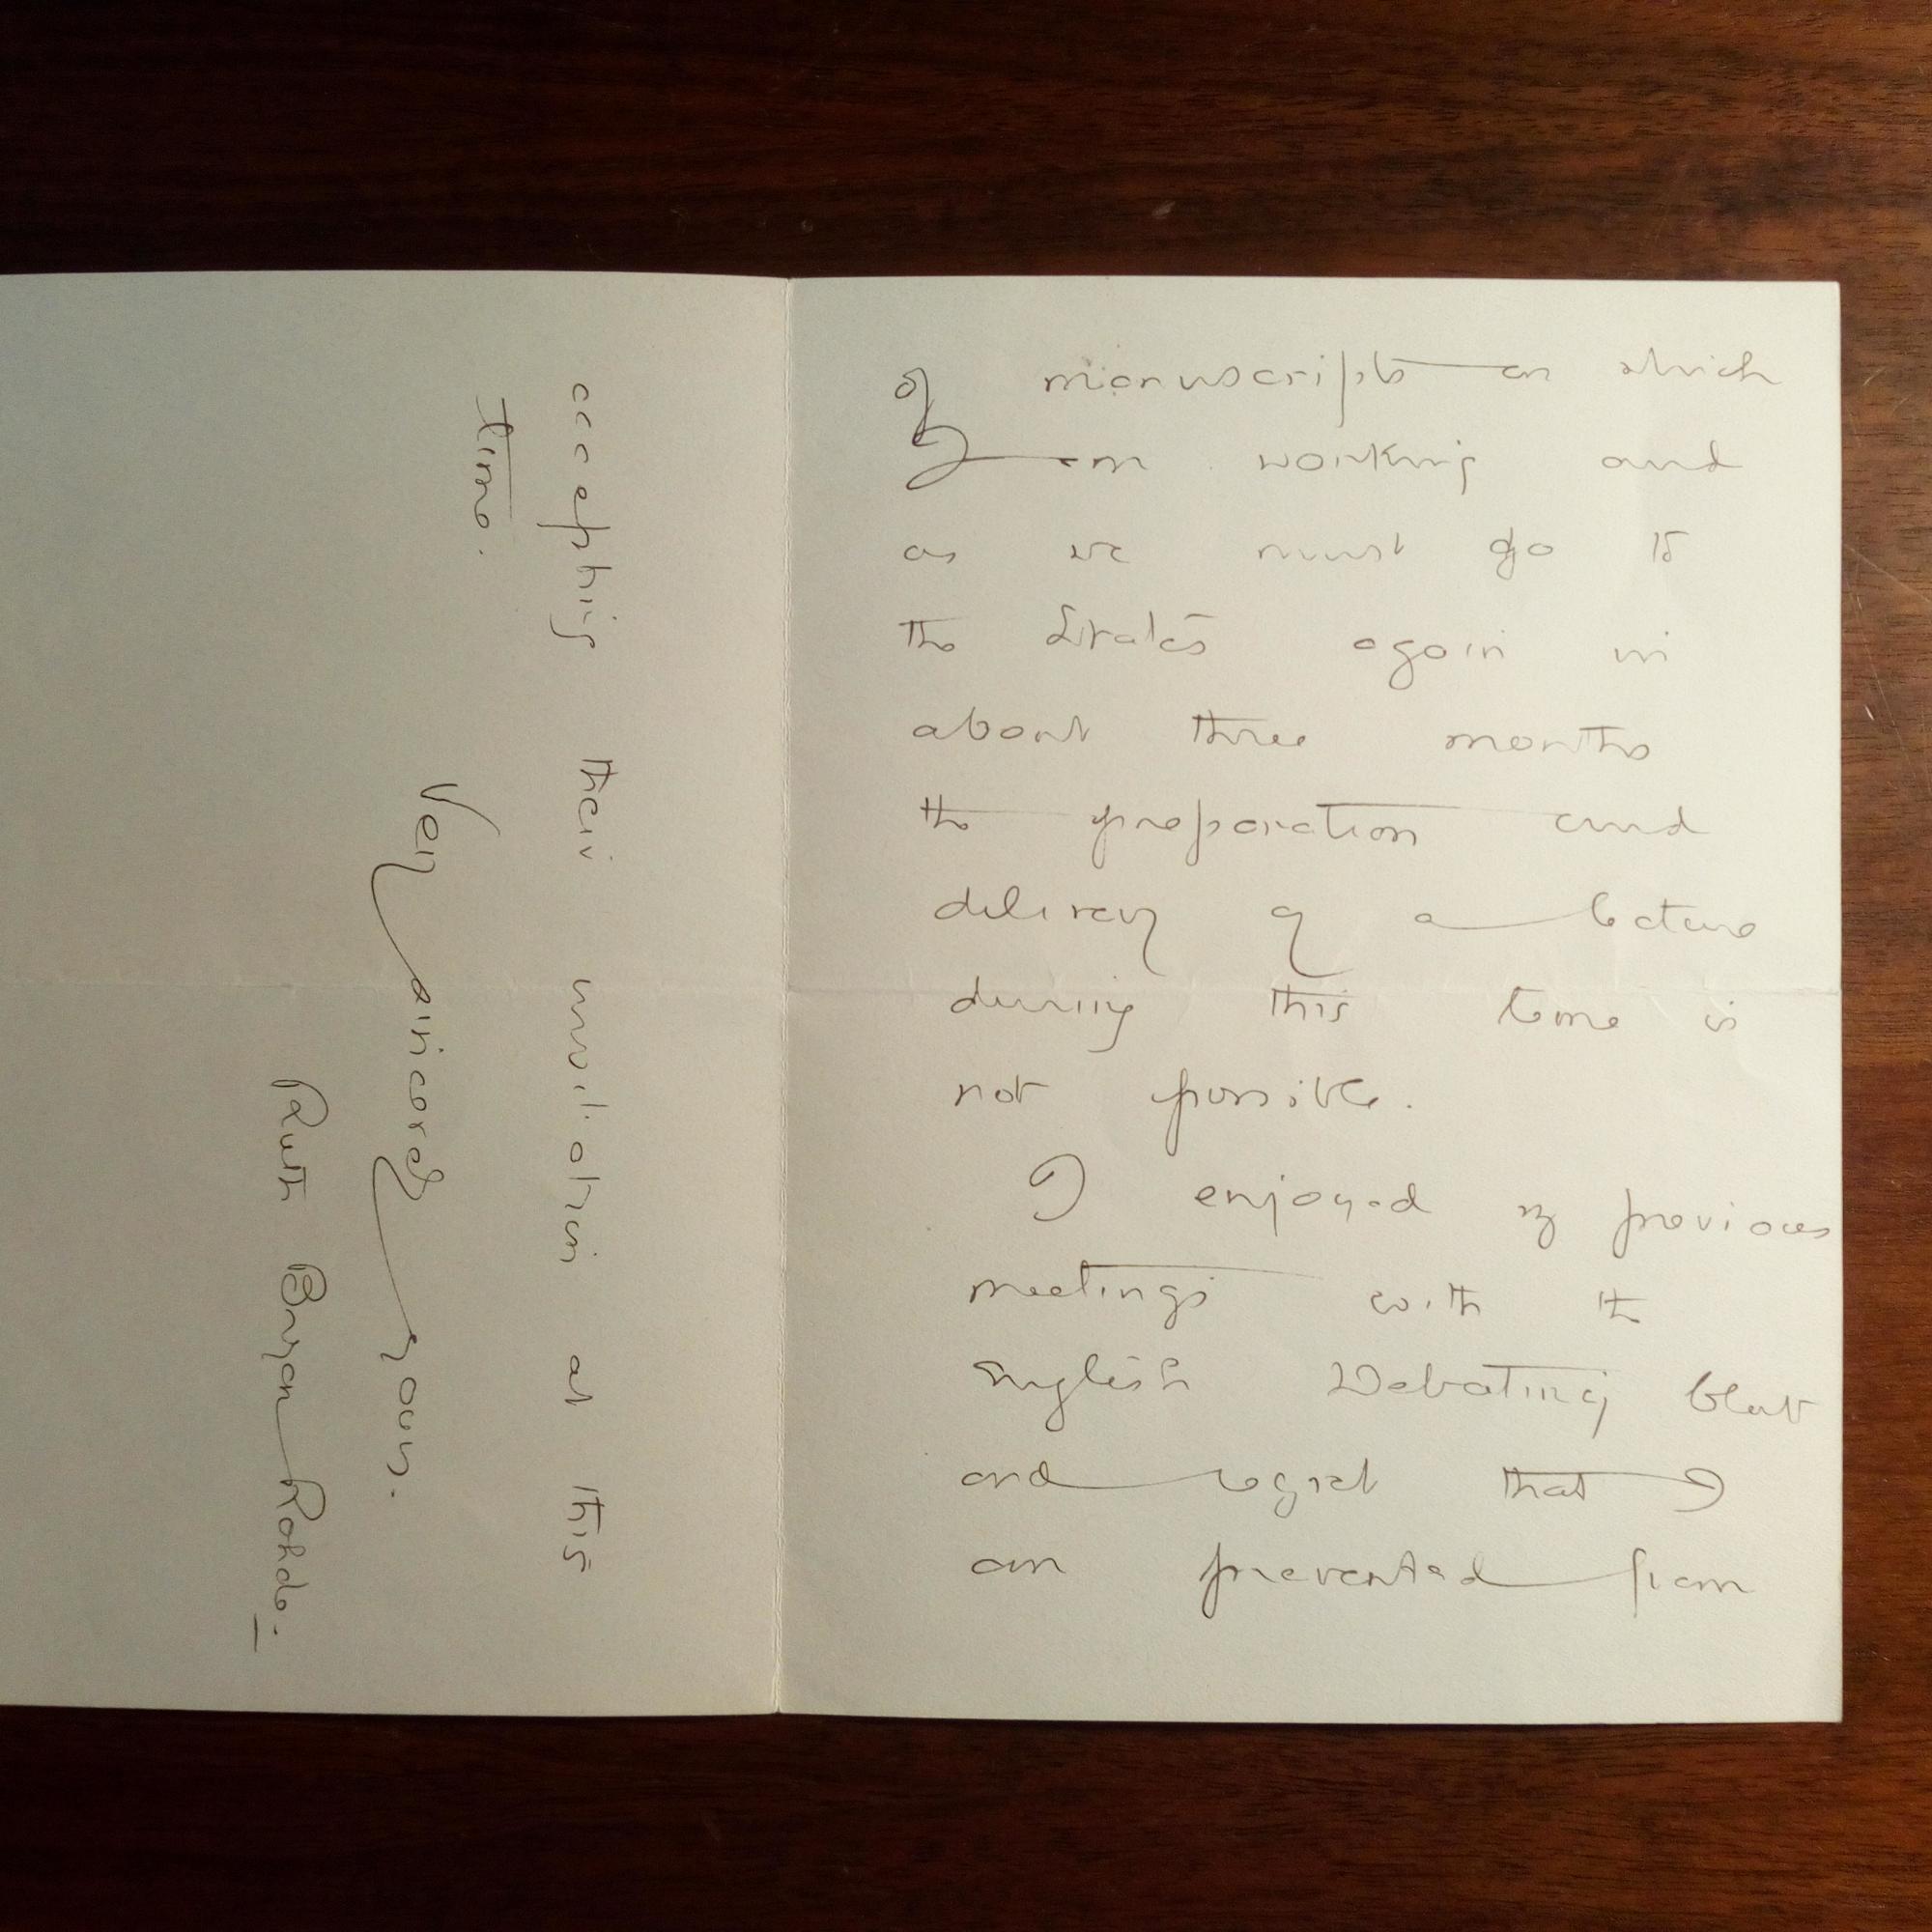 of manuscripts on which
I am working and
as we must go to
the States again in
about three months
the preparation and
delivery of a lecture
during this time is
not possible.
I enjoyed my previous
meetings with the
English Debating Club
and regret that I
am prevented from
accepting their invitation at this
time.
Very sincerely yours.
Ruth Bryan Rohde.